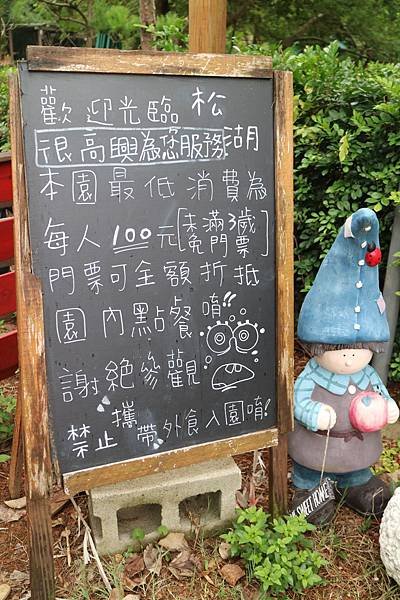 歡迎光臨松湖
很高興為您服務
本園最低消費為
每人100元[未滿3歲免門票]
門票可全額折抵
園內點餐唷!!
謝絕參觀
禁止攜帶外食入園唷!
SWEET HOME